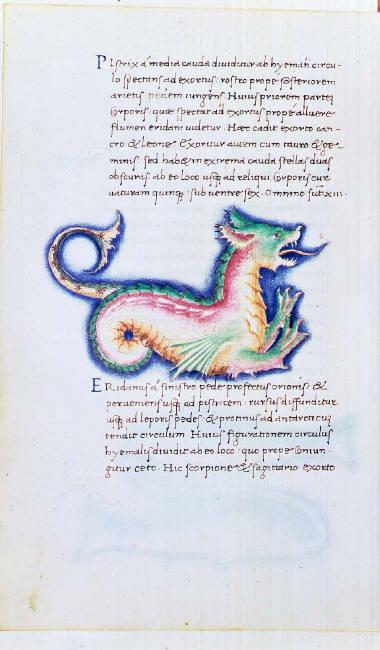 PIstrix a media cauda diuiditur ab hyemali circu-
lo spectans ad exortus: rostro prope posteriorem
arietis pedem iungens. Huius priorem partem
corporis: quae spectat ad exortus prope alluere
flumen eridani uidetur. Haec cadit exorto can-
cro & leone & exoritur autem cum tauro & ge-
minis. sed habet in extrema cauda stellas duas
obscuras. ab eo loco usq; ad reliqui corporis cur
uaturam quinq;: sub uentre sex. Omnino sūt xiii.
ERidanus a sinistro pede profectus orionis: &
perueniens usq; ad pistricem: rursus diffunditur
usq; ad leporis pedes: & protinus ad antarcticū
tendit circulum. Huius figurationem circulus
hyemalis diuidit ab eo loco: quo prope coniun-
gitur ceto. Hic scorpione & sagittario exorto